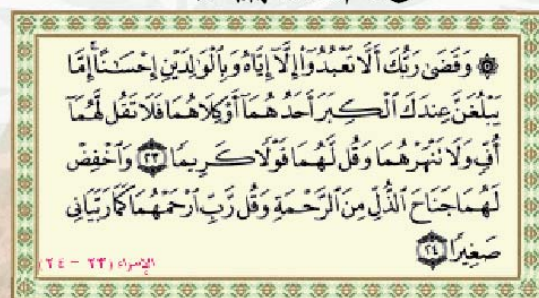 ۞ وَقَضَىٰ رَبُّكَ أَلَّا تَعْبُدُوٓا۟ إِلَّآ إِيَّاهُ وَبِٱلْوَٰلِدَيْنِ إِحْسَـٰنًا ۚ إِمَّا
يَبْلُغَنَّ عِندَكَ ٱلْكِبَرَ أَحَدُهُمَآ أَوْ كِلَاهُمَا فَلَا تَقُل لَّهُمَآ
أُفٍّ وَلَا تَنْهَرْهُمَا وَقُل لَّهُمَا قَوْلًا كَرِيمًا ﴿٢٣﴾ وَٱخْفِضْ
لَهُمَا جَنَاحَ ٱلذُّلِّ مِنَ ٱلرَّحْمَةِ وَقُل رَّبِّ ٱرْحَمْهُمَا كَمَا رَبَّيَانِى
صَغِيرًا ﴿٢٤﴾
الإسراء (٢٣ - ٢٤)